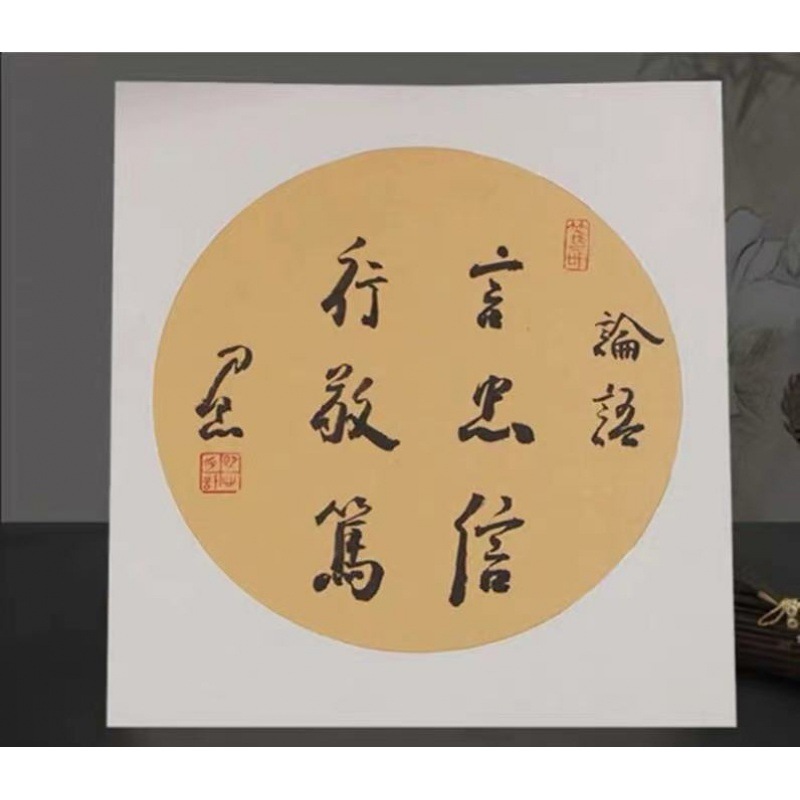 論語
言忠信
行敬篤